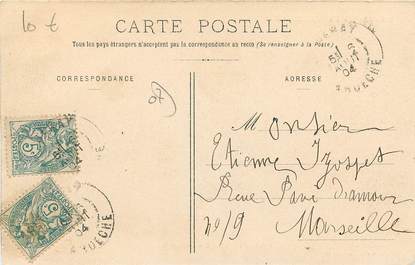 10 €
CARTE POSTALE
Tous les pays étrangers n'acceptent pas la correspondance au recto (Se renseigner à la Poste)
CORRESPONDANCE
ADRESSE
07
AOUT
04
ARDECHE
5
5
04
ARDECHE
Monsieur
Etienne
Rue Pavé d'amour
No 19
Marseille